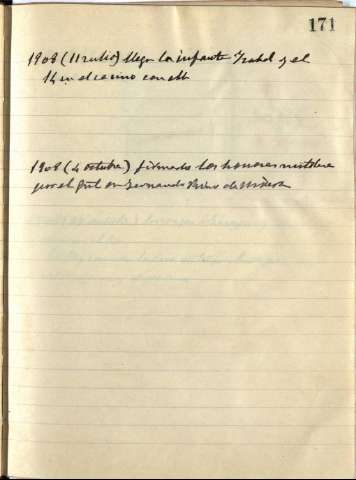 171
1908 (11 julio) llega la infanta Isabel y el
14 en el casino con ella
1908 (4 octubre) firmado los honores
por el Gral en Fernando Primo de Rivera